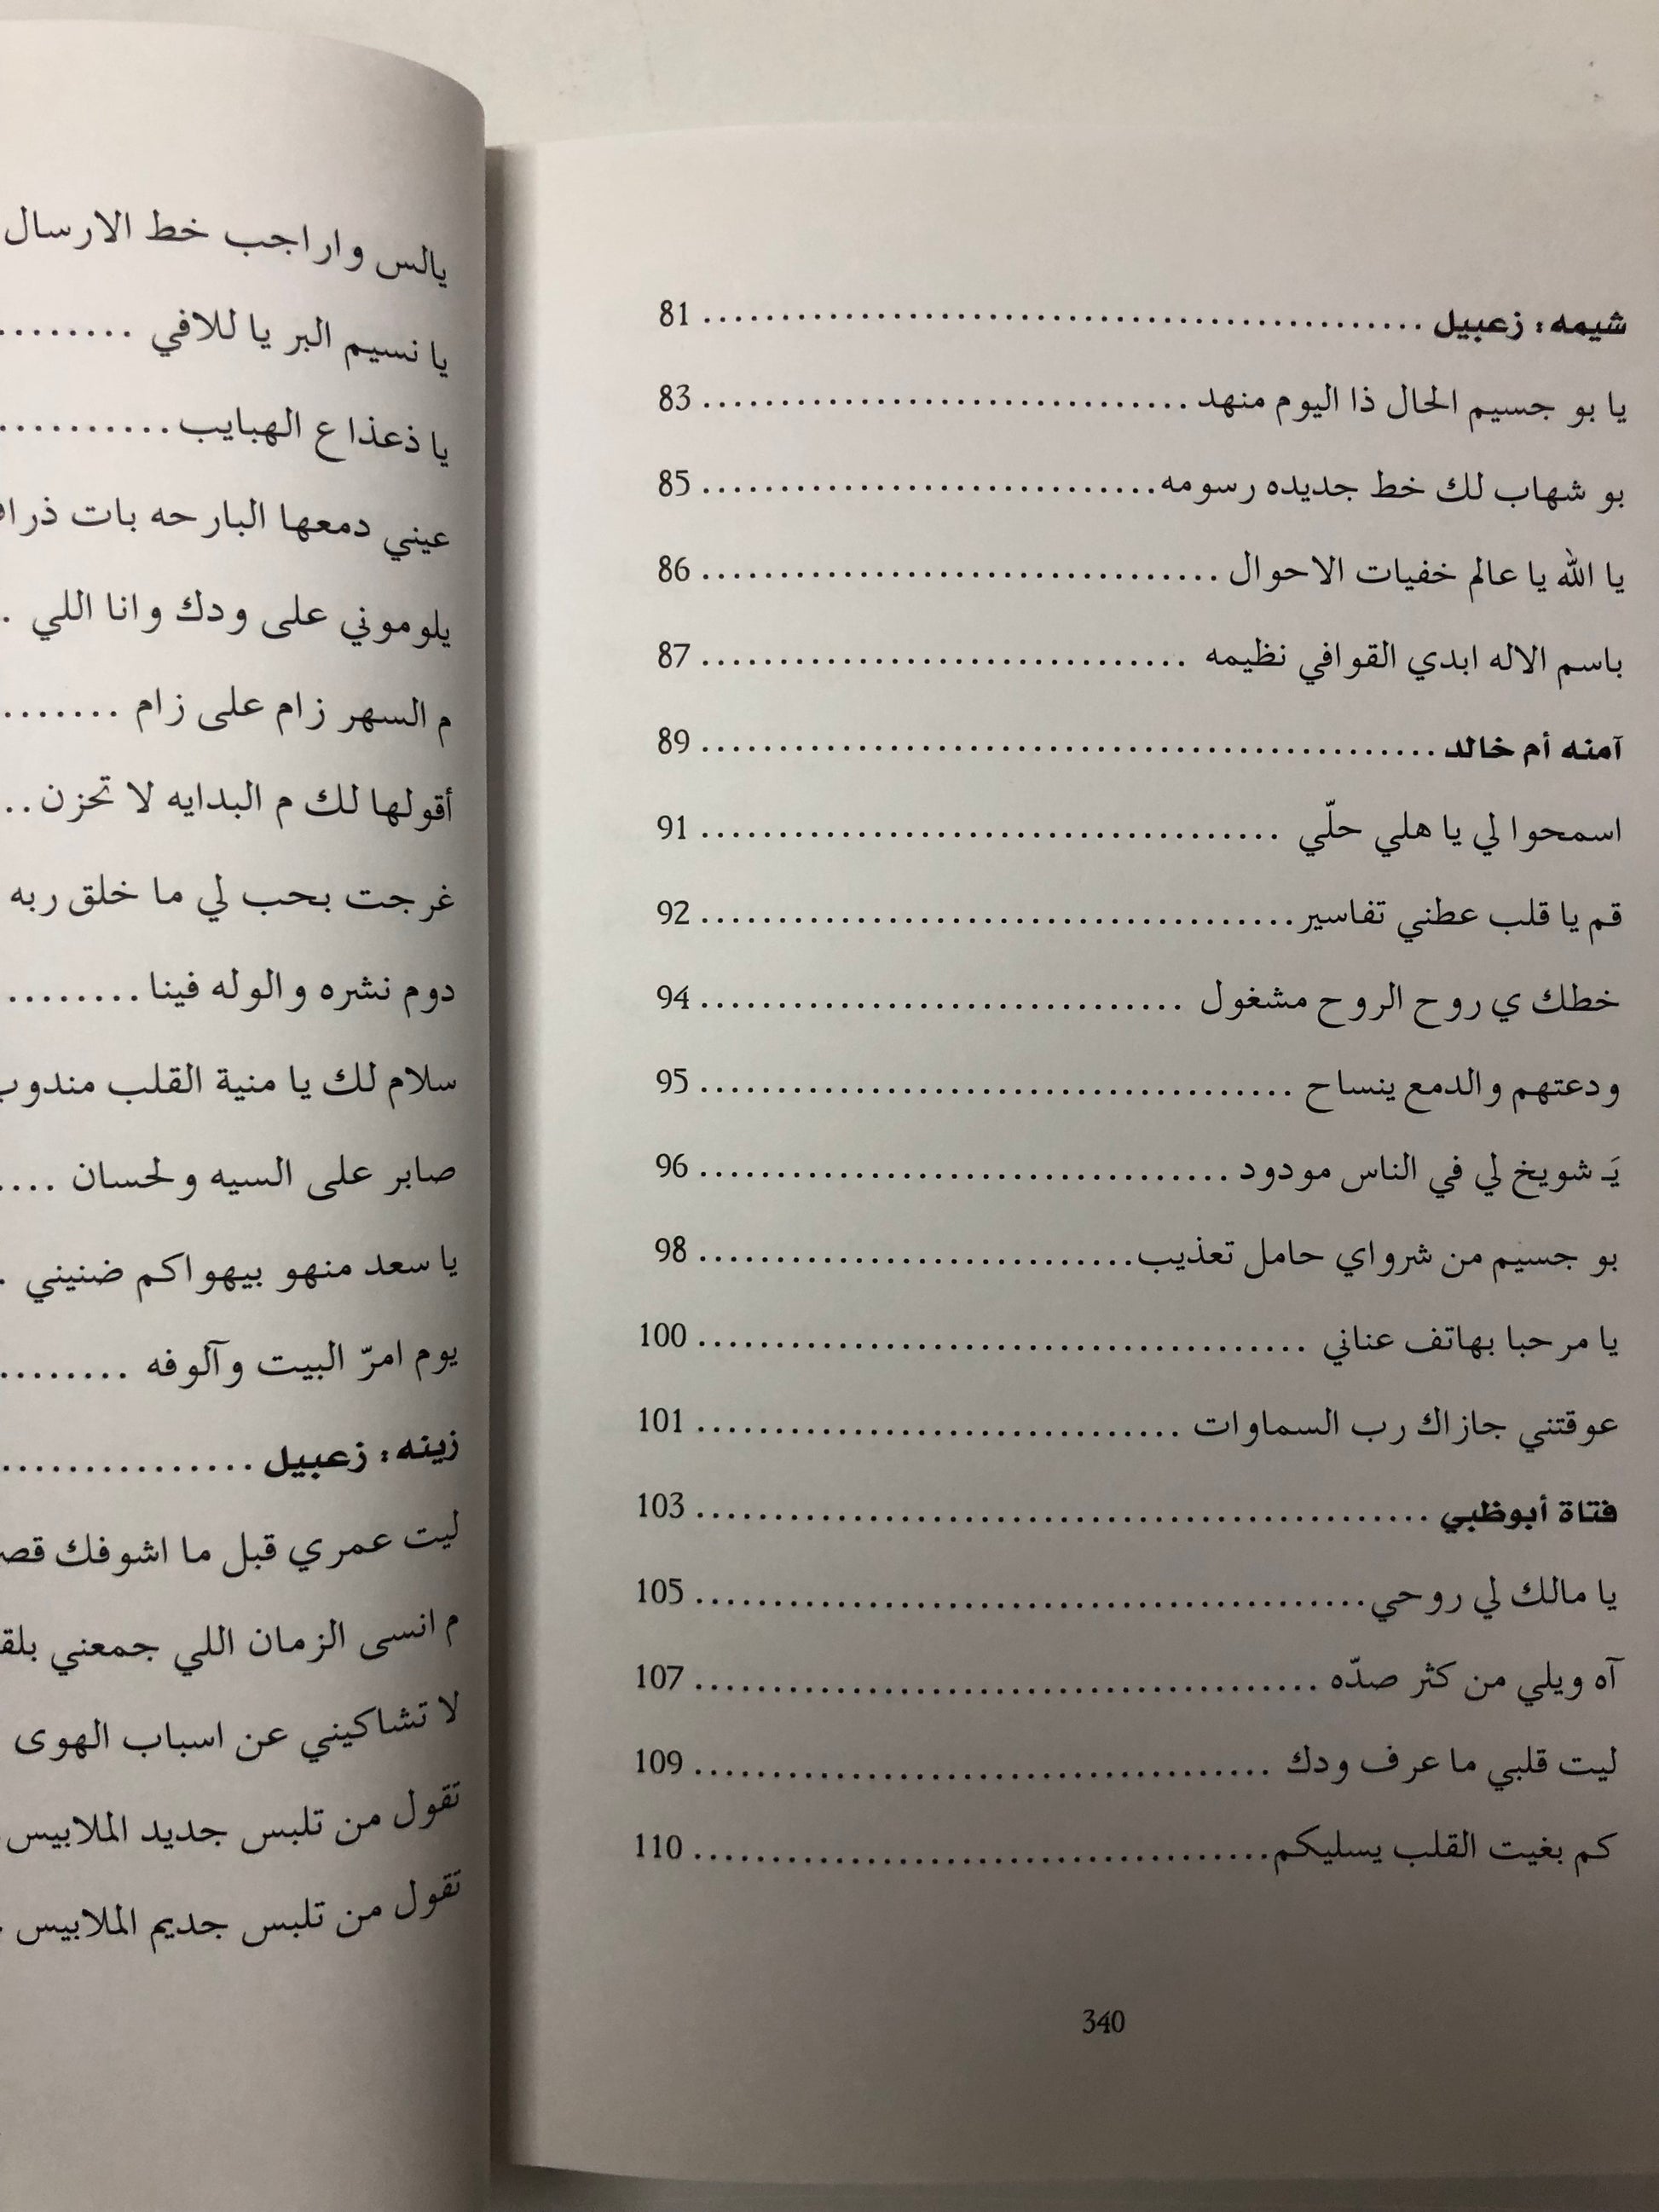 شيمه: زعبيل ........ 81
يا بو جسيم الحال ذا اليوم منهد ........ 83
بو شهاب لك خط جديده رسومه ........ 85
يا الله يا عالم خفيات الاحوال ........ 86
باسم الاله ابدي القوافي نظيمه ........ 87
آمنه أم خالد ........ 89
اسمحوا لي يا هلي حلّي ........ 91
قم يا قلب عطني تفاسير ........ 92
خطك ي روح الروح مشغول ........ 94
ودعتهم والدمع ينساح ........ 95
يَـ شويخ لي في الناس مودود ........ 96
بو جسيم من شرواي حامل تعذيب ........ 98
يا مرحبا بهاتف عناني ........ 100
عوقتني جازاك رب السماوات ........ 101
فتاة أبوظبي ........ 103
يا مالك لي روحي ........ 105
آه ويلي من كثر صدّه ........ 107
ليت قلبي ما عرف ودك ........ 109
كم بغيت القلب يسليكم ........ 110
340
يالس واراجب خط الارسال
يا نسيم البر يا للافي ........
يا ذعذاع الهبايب ........
عيني دمعها البارحه بات
يلوموني على ودك وانا اللي .
م السهر زام على زام ........
أقولها لك م البدايه لا تحزن ..
غرجت بحب لي ما خلق ربه
دوم نشره والوله فينا ........
سلام لك يا منية القلب
صابر على السيه ولحسان ....
يا سعد منهو بيهواكم ضنيني .
يوم امرّ البيت وآلوفه ........
زينه: زعبيل ........
ليت عمري قبل ما اشوفك
م انسى الزمان اللي جمعني
لا تشاكيني عن اسباب الهوى
تقول من تلبس جديد الملابيس
تقول من تلبس جديم الملابيس